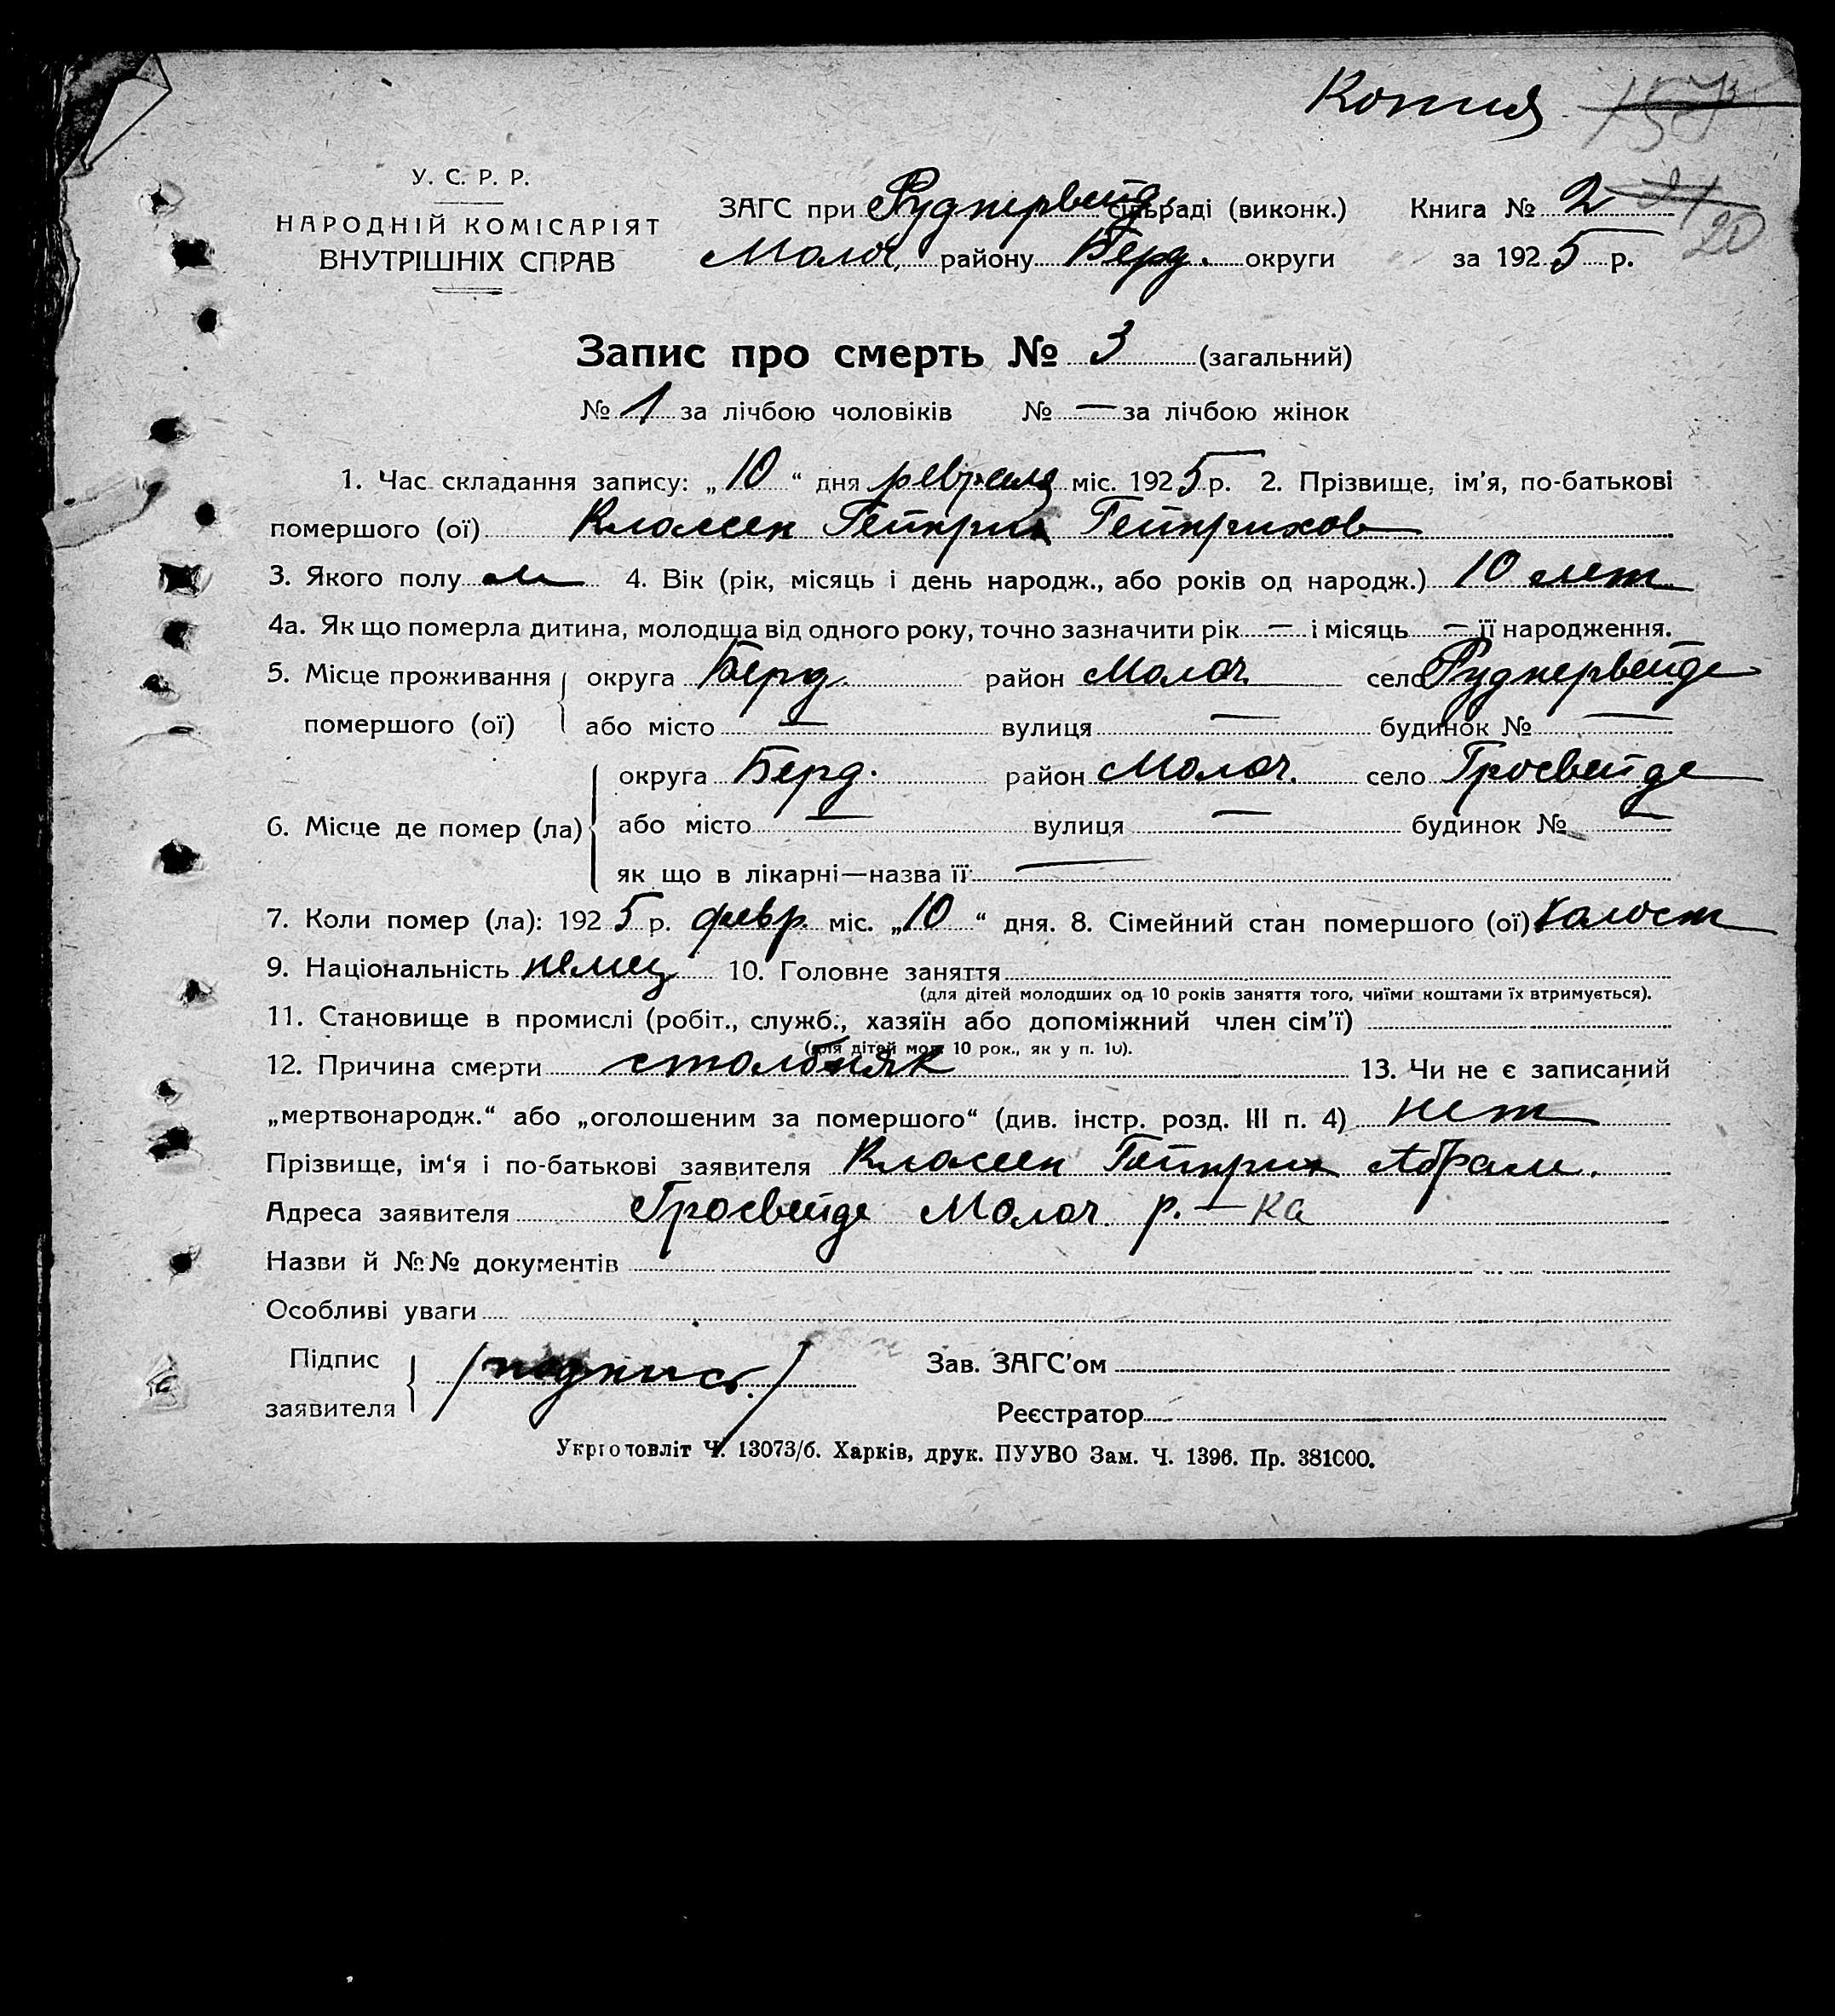 Копия
У. С. Р. Р.
НАРОДНІЙ КОМІСАРІЯТ
ВНУТРІШНІХ СПРАВ
ЗАГС при Руднервейд. сільраді (виконк.) Книга № 2 21 20
Молоч. району Берд. округи за 1925 р.
Запис про смерть № 3 (загальний)
№ 1 за лічбою чоловіків № — за лічбою жінок
1. Час складання запису: „10“ дня февраля міс. 1925 р. 2. Прізвище, ім'я, по-батькові
помершого (ої) Классен Гейнрих Гейнрихов
3. Якого полу м 4. Вік (рік, місяць і день народж., або років од народж.) 10 лет
4а. Як що померла дитина, молодша від одного року, точно зазначити рік — і місяць — її народження.
5. Місце проживання помершого (ої) округа Берд. район Молоч село Руднервейде
або місто — вулиця — будинок № —
6. Місце де помер (ла) округа Берд. район Молоч. село Гросвейде
або місто — вулиця — будинок № —
як що в лікарні—назва її —
7. Коли помер (ла): 1925 р. февр. міс. „10“ дня. 8. Сімейний стан помершого (ої) холост
9. Національність немец 10. Головне заняття
(для дітей молодших од 10 років заняття того, чиїми коштами їх втримується).
11. Становище в промислі (робіт., служб., хазяїн або допоміжний член сім'ї)
(для дітей мол. 10 рок., як у п. 10).
12. Причина смерти столбняк 13. Чи не є записаний
„мертвонародж.“ або „оголошеним за помершого“ (див. інстр. розд. III п. 4) нет
Прізвище, ім'я і по-батькові заявителя Классен Гейнрих Абрам.
Адреса заявителя Гросвейде Молоч. р.—ка
Назви й №№ документів
Особливі уваги
Підпис заявителя /подпись./ Зав. ЗАГС'ом
Реєстратор
Укрголовліт Ч. 13073/б. Харків, друк. ПУУВО Зам. Ч. 1396. Пр. 381000.